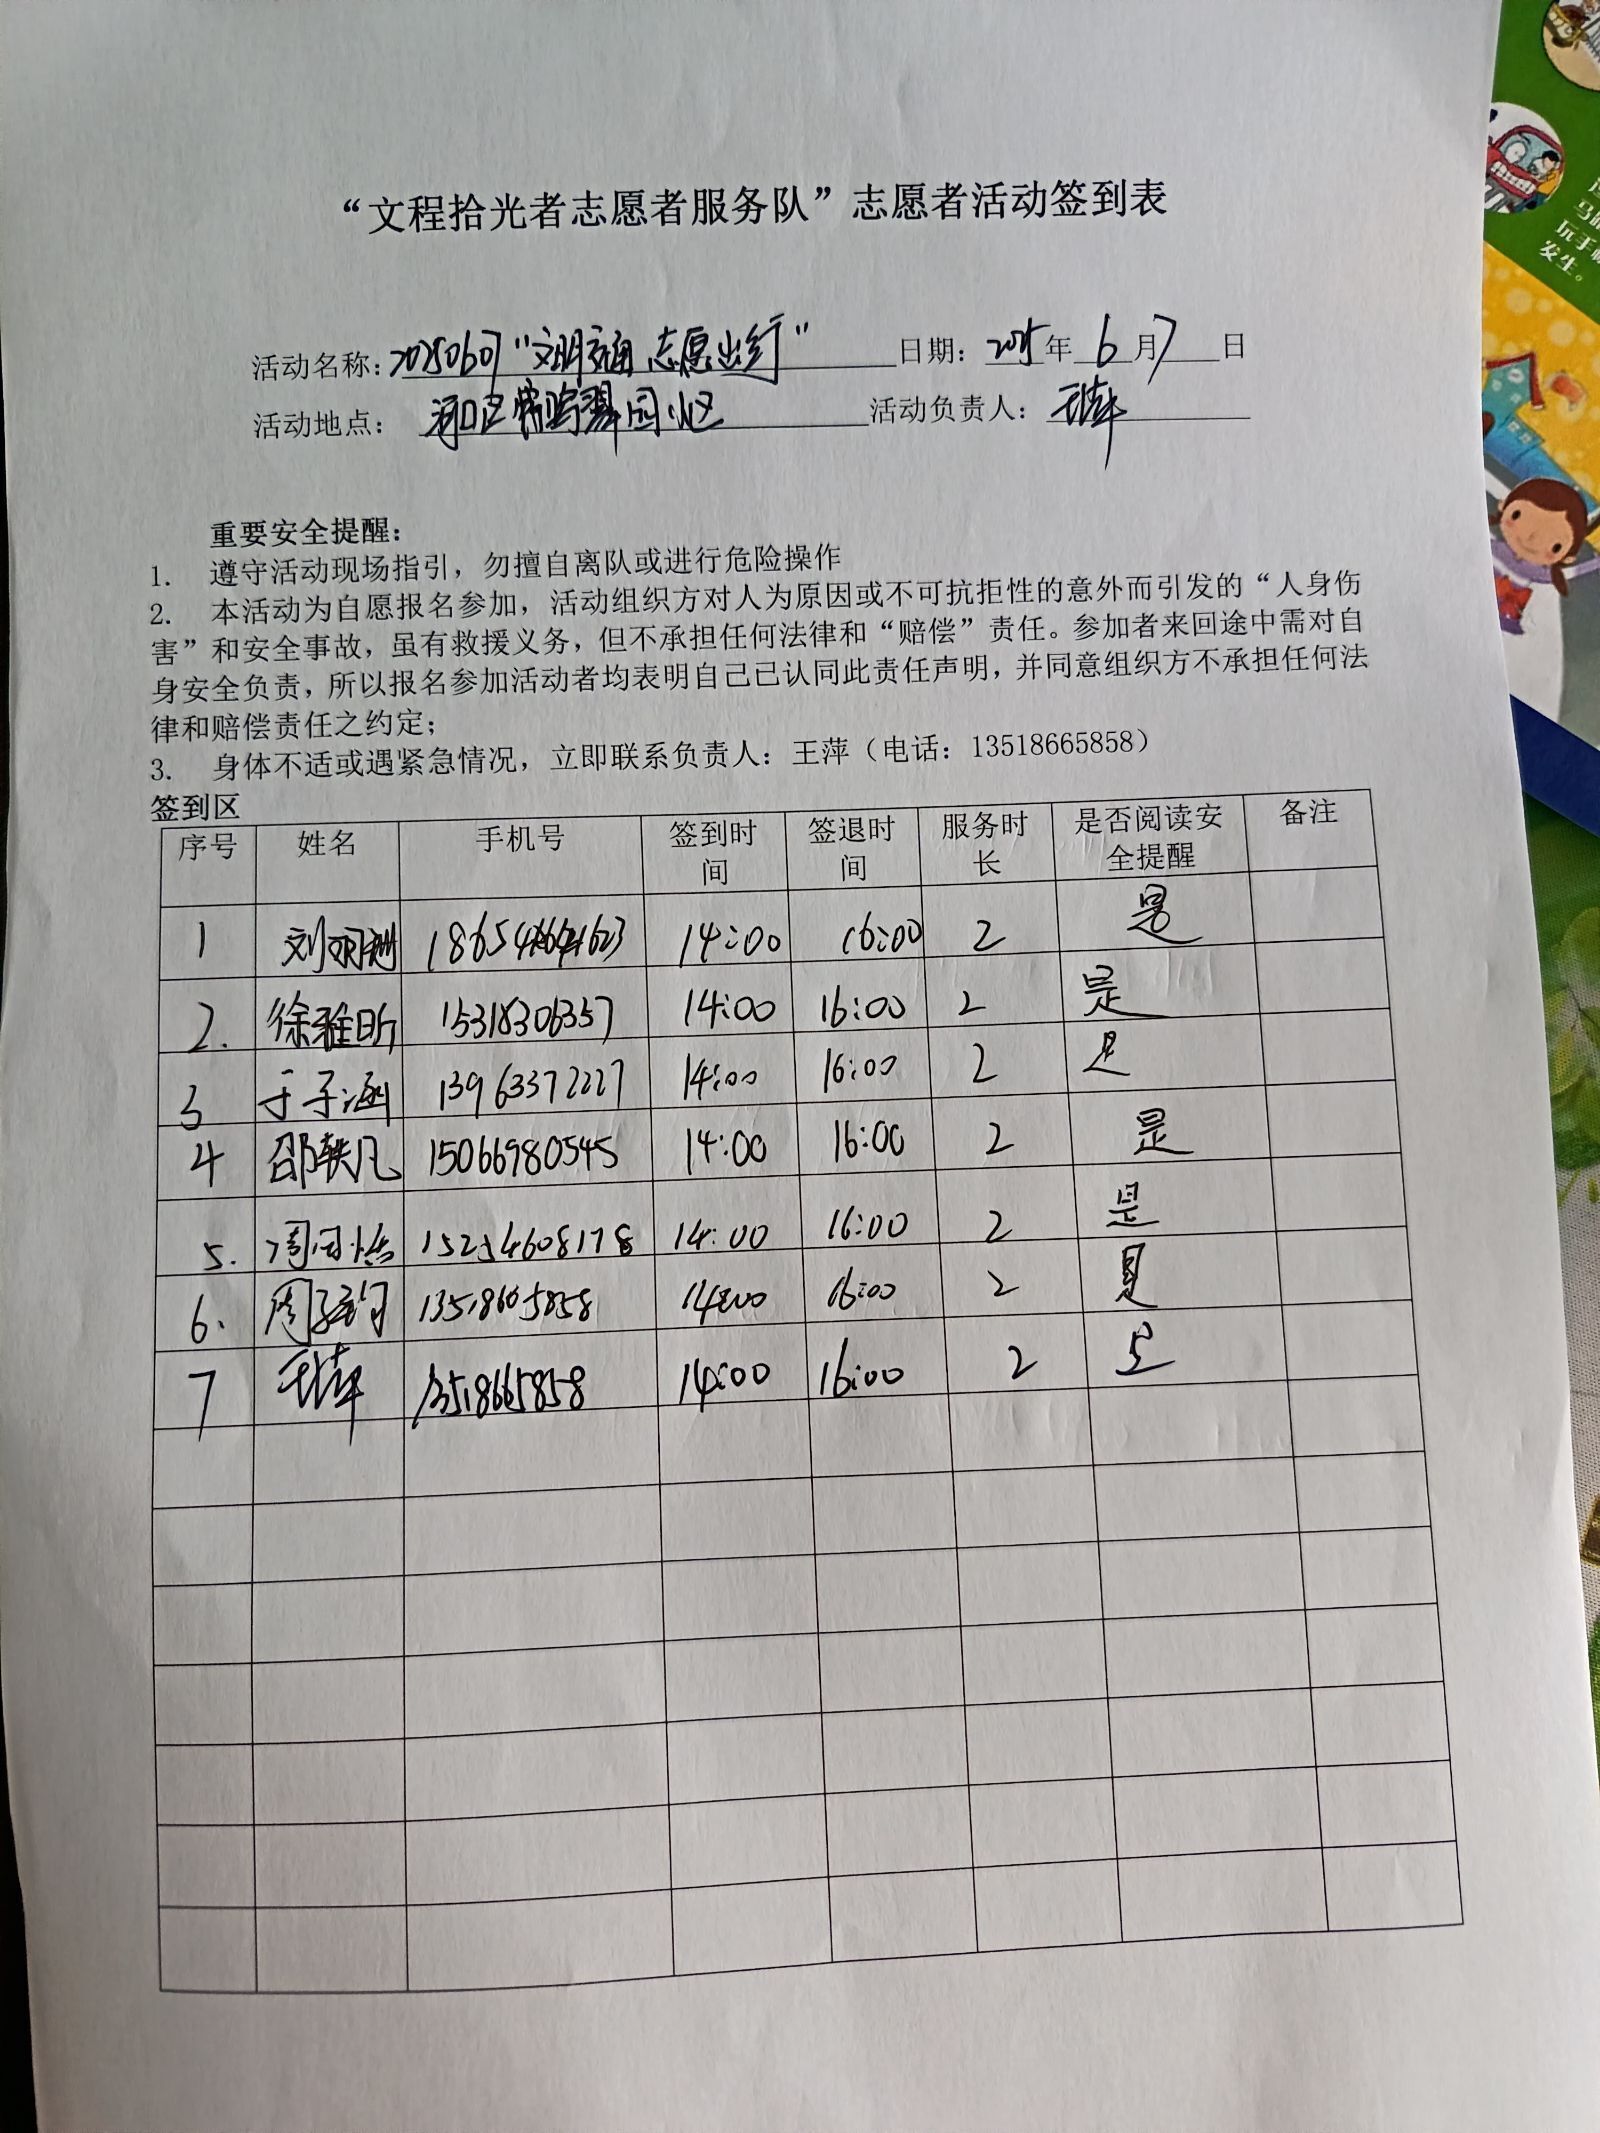 “文程拾光者志愿者服务队”志愿者活动签到表
活动名称：20250607“文明交通 志愿出行” 日期：2025年 6 月 7 日
活动地点： 河口区 鹤鸣翠园小区 活动负责人：王萍
重要安全提醒：
1. 遵守活动现场指引，勿擅自离队或进行危险操作
2. 本活动为自愿报名参加，活动组织方对人为原因或不可抗拒性的意外而引发的“人身伤
害”和安全事故，虽有救援义务，但不承担任何法律和“赔偿”责任。参加者来回途中需对自
身安全负责，所以报名参加活动者均表明自己已认同此责任声明，并同意组织方不承担任何法
律和赔偿责任之约定；
3. 身体不适或遇紧急情况，立即联系负责人：王萍（电话：13518665858）
签到区
序号 姓名 手机号 签到时间 签退时间 服务时长 是否阅读安全提醒 备注
1 刘 14:00 16:00 2 是
2. 徐雅昕 15318306357 14:00 16:00 2 是
3 于子涵 13963372227 14:00 16:00 2 是
4 邵轶凡 15066980545 14:00 16:00 2 是
5. 周 15254608178 14:00 16:00 2 是
6. 周 13518665858 14:00 16:00 2 是
7 王萍 13518665858 14:00 16:00 2 是
马
玩手
发生。